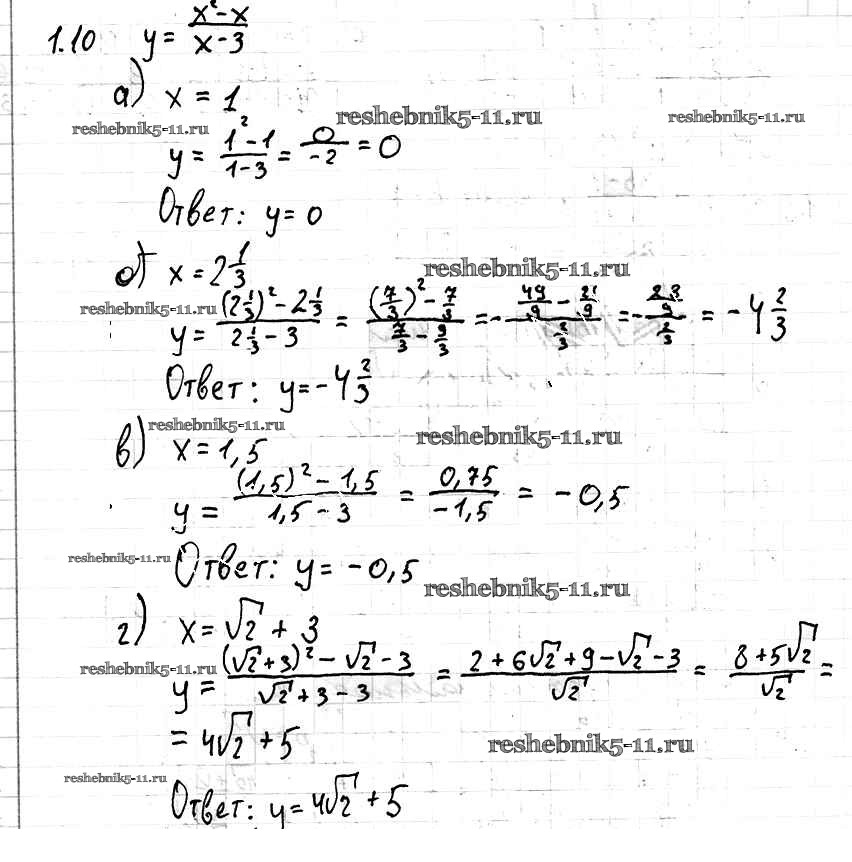 1.10 y = (x² - x)/(x - 3)
а) x = 1
reshebnik5-11.ru reshebnik5-11.ru reshebnik5-11.ru
y = (1² - 1)/(1 - 3) = 0/(-2) = 0
Ответ: y = 0
б) x = 2 1/3
reshebnik5-11.ru
reshebnik5-11.ru
y = ((2 1/3)² - 2 1/3)/(2 1/3 - 3) = ((7/3)² - 7/3)/(7/3 - 9/3) = -(49/9 - 21/9)/(2/3) = -(23/9)/(2/3) = -4 2/3
Ответ: y = -4 2/3
reshebnik5-11.ru
в) x = 1,5
reshebnik5-11.ru
y = ((1,5)² - 1,5)/(1,5 - 3) = 0,75/(-1,5) = -0,5
reshebnik5-11.ru
Ответ: y = -0,5
reshebnik5-11.ru
г) x = √2 + 3
reshebnik5-11.ru
y = ((√2 + 3)² - √2 - 3)/(√2 + 3 - 3) = (2 + 6√2 + 9 - √2 - 3)/√2 = (8 + 5√2)/√2 =
= 4√2 + 5
reshebnik5-11.ru
reshebnik5-11.ru
Ответ: y = 4√2 + 5